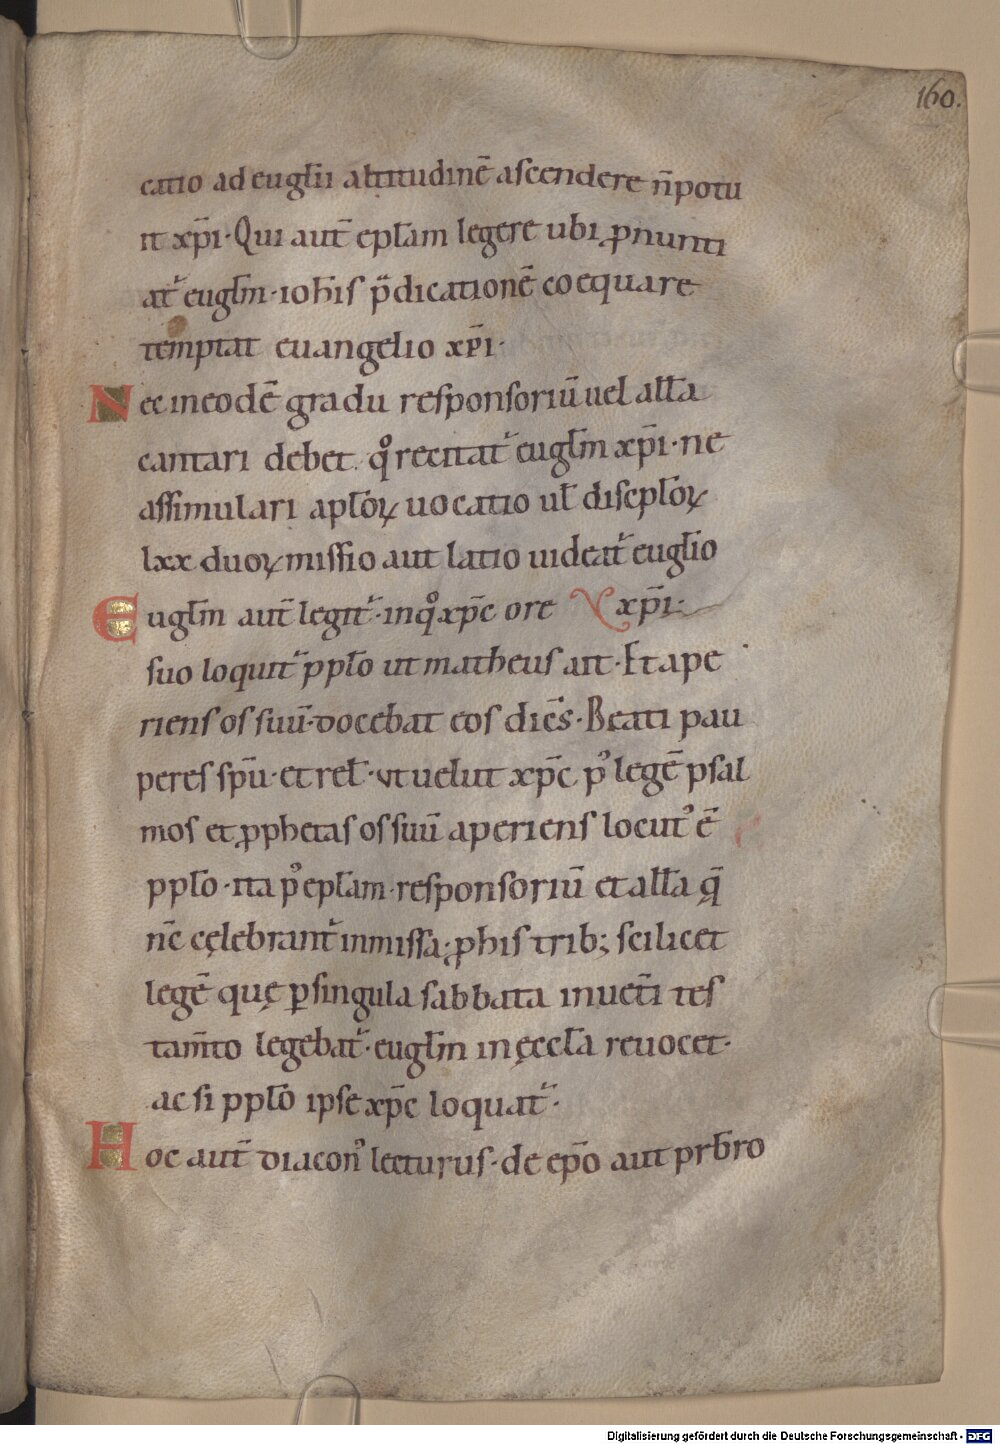 160.
catio ad euglii altitudinē ascendere n̄ potu
it xp̄i· Qui aut̄ epl̄am legere ubi ꝓnunti
at᷑ euglm̄· ioh̄is p̄dicationē coequare
temptat euangelio xp̄i·
Nec in eodē gradu responsoriū uel all̄a
cantari debet. qͦ recitat᷑ euglm̄ xp̄i· ne
assimulari apl̄oꝝ uocatio ul̄ discpl̄oꝝ
lxx duoꝝ missio aut latio uideat᷑ euglio
Euglm̄ aut̄ legit᷑· in qͦ xp̄c ore xp̄i·
suo loquit᷑ ppl̄o ut matheus ait· Et ape
riens os suū· docebat eos dicēs· Beati pau
peres spū· et rel̄· ut uelut xp̄c pꝰ legē psal
mos et ꝓphetas os suū aperiens locutꝰ ē
ppl̄o· ita pꝰ epl̄am· responsoriū et all̄a q̄
nc̄ cęlebrant᷑ in missa· ꝓ his trib; scilicet
legē quę ꝑ singula sabbata in uet̄i tes
tam̄to legebat᷑· euglm̄ in ęccl̄a reuocet·
ac si ppl̄o ipse xp̄c loquat᷑·
Hoc aut̄ diaconꝰ lecturus· de ep̄o aut prb̄ro
Digitalisierung gefördert durch die Deutsche Forschungsgemeinschaft - DFG